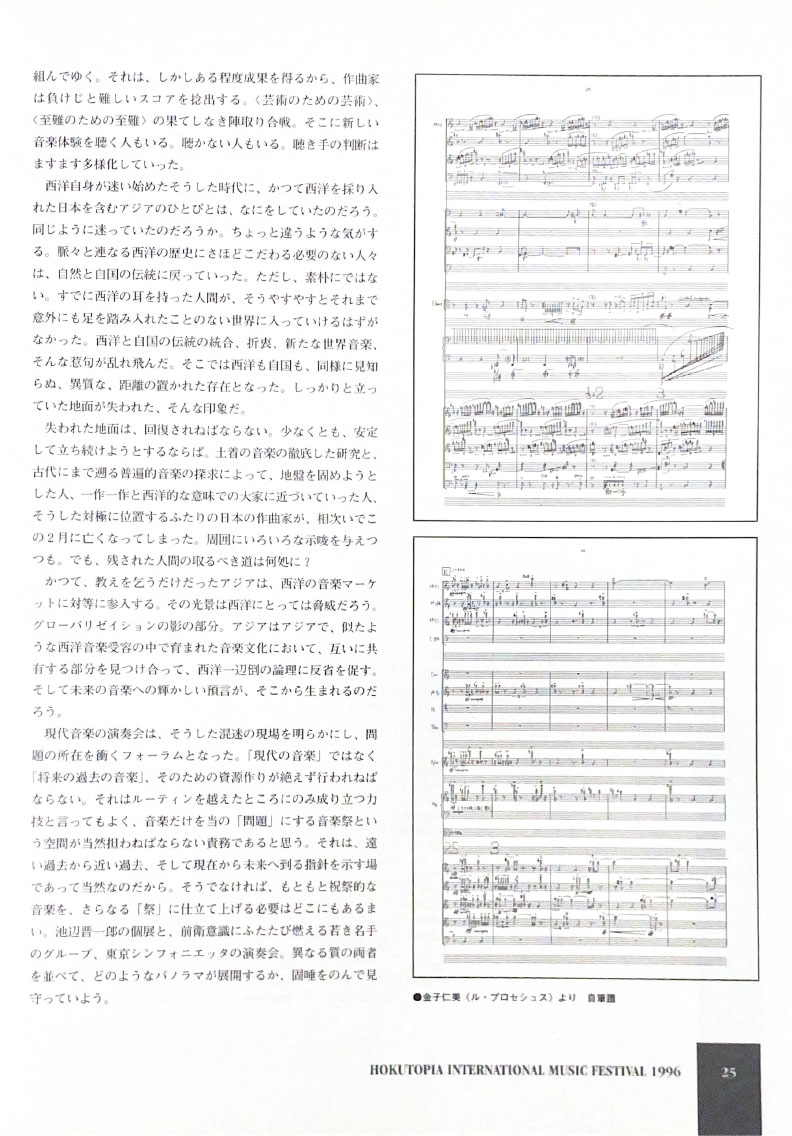 組んでゆく。それは、しかしある程度成果を得るから、作曲家
は負けじと難しいスコアを捻出する。〈芸術のための芸術〉、
〈至難のための至難〉の果てしなき陣取り合戦。そこに新しい
音楽体験を聴く人もいる。聴かない人もいる。聴き手の判断は
ますます多様化していった。
西洋自身が迷い始めたそうした時代に、かつて西洋を採り入
れた日本を含むアジアのひとびとは、なにをしていたのだろう。
同じように迷っていたのだろうか。ちょっと違うような気がす
る。脈々と連なる西洋の歴史にさほどこだわる必要のない人々
は、自然と自国の伝統に戻っていった。ただし、素朴にではな
い。すでに西洋の耳を持った人間が、そうやすやすとそれまで
意外にも足を踏み入れたことのない世界に入っていけるはずが
なかった。西洋と自国の伝統の統合、折衷、新たな世界音楽、
そんな惹句が乱れ飛んだ。そこでは西洋も自国も、同様に見知
らぬ、異質な、距離の置かれた存在となった。しっかりと立っ
ていた地面が失われた、そんな印象だ。
失われた地面は、回復されねばならない。少なくとも、安定
して立ち続けようとするならば。土着の音楽の徹底した研究と、
古代にまで遡る普遍的音楽の探求によって、地盤を固めようと
した人、一作一作と西洋的な意味での大家に近づいていった人、
そうした対極に位置するふたりの日本の作曲家が、相次いでこ
の2月に亡くなってしまった。周囲にいろいろな示唆を与えつ
つも。でも、残された人間の取るべき道は何処に？
かつて、教えを乞うだけだったアジアは、西洋の音楽マーケ
ットに対等に参入する。その光景は西洋にとっては脅威だろう。
グローバリゼイションの影の部分。アジアはアジアで、似たよ
うな西洋音楽受容の中で育まれた音楽文化において、互いに共
有する部分を見つけ合って、西洋一辺倒の論理に反省を促す。
そして未来の音楽への輝かしい預言が、そこから生まれるのだ
ろう。
現代音楽の演奏会は、そうした混迷の現場を明らかにし、問
題の所在を衝くフォーラムとなった。「現代の音楽」ではなく
「将来の過去の音楽」、そのための資源作りが絶えず行われねば
ならない。それはルーティンを越えたところにのみ成り立つ力
技と言ってもよく、音楽だけを当の「問題」にする音楽祭とい
う空間が当然担わねばならない責務であると思う。それは、遠
い過去から近い過去、そして現在から未来へ到る指針を示す場
であって当然なのだから。そうでなければ、もともと祝祭的な
音楽を、さらなる「祭」に仕立て上げる必要はどこにもあるま
い。池辺晋一郎の個展と、前衛意識にふたたび燃える若き名手
のグループ、東京シンフォニエッタの演奏会。異なる質の両者
を並べて、どのようなパノラマが展開するか、固唾をのんで見
守っていよう。
●金子仁美〈ル・プロセシュス〉より 自筆譜
HOKUTOPIA INTERNATIONAL MUSIC FESTIVAL 1996
25